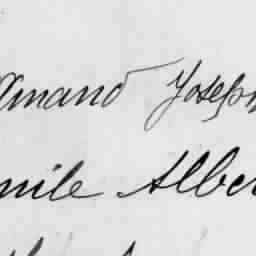 Amand Joseph
mile Alber